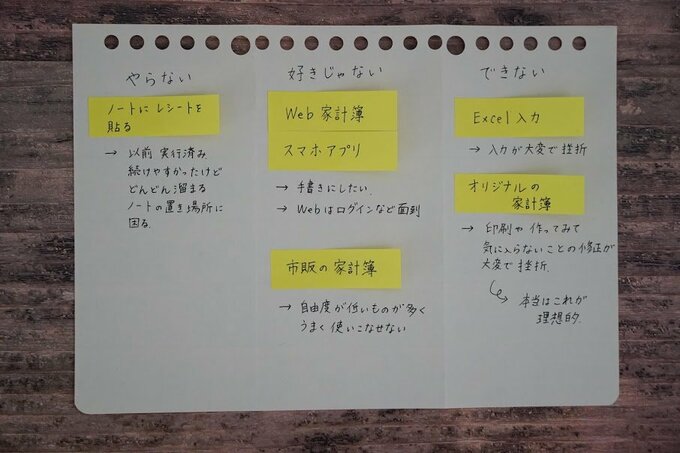 やらない
ノートに レシートを
貼る
→ 以前 実行済み
続けやすかったけど
どんどん溜まる
ノートの置き場所に
困る.
好きじゃない
Web 家計簿
スマホアプリ
→ 手書きにしたい.
→ Webはログインなど面倒
市販の家計簿
→ 自由度が低いものが多く
うまく使いこなせない
できない
Excel 入力
→ 入力が大変で挫折
オリジナルの
家計簿
→ 印刷や 作ってみて
気に入らないことの修正が
大変で挫折.
↪ 本当はこれが
理想的.